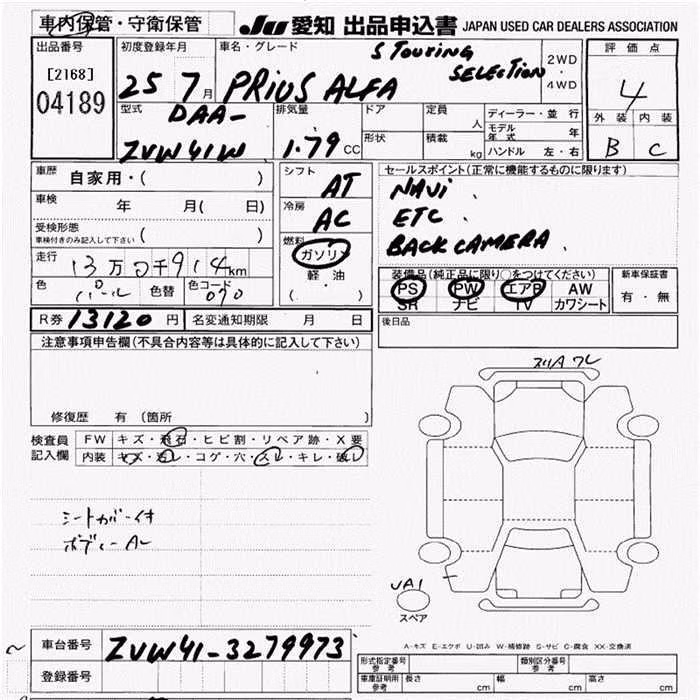 車内保管・守衛保管
JU 愛知 出品申込書 JAPAN USED CAR DEALERS ASSOCIATION
出品番号
[2168]
04189
初度登録年月
25 7月
車名・グレード
S TOURING
SELECTION
PRIUS ALFA
2WD
・
4WD
評価点
4
外装 内装
B C
型式
DAA-
ZVW41W
排気量
1.79 CC
ドア
定員
人
形状
積載
kg
ディーラー・並行
モデル年式 年
ハンドル 左・右
車歴 自家用・( )
車検 年 月( 日)
受検形態
車検付きのみ記入して下さい ( )
走行 13万0千914km
色 パール 色替 色コード 070
シフト
AT
冷房
AC
燃料
ガソリン
軽油
( ・ )
セールスポイント(正常に機能するものに限ります)
NAVI .
ETC .
BACK CAMERA .
装備品(純正品に限り○をつけてください)
PS PW エアB AW
SR ナビ TV カワシート
新車保証書
有・無
R券 13120 円 名変通知期限 月 日
後日品
注意事項申告欄(不具合内容等は具体的に記入して下さい)
修復歴 有 (箇所 )
検査員
記入欄
FW キズ・飛石・ヒビ割・リペア跡・X要
内装 キズ・汚レ・コゲ・穴・スレ・キレ・破レ
シートカバー付
ボディーAレ
UA1
スペア
A-キズ E-エクボ U-凹み W-補修跡 S-サビ C-腐食 XX-交換済
車台番号 ZVW41-3279973
登録番号
形式指定番号
参考
類別区分番号
参考
車庫証明用
参考
長さ cm 幅 cm 高さ cm